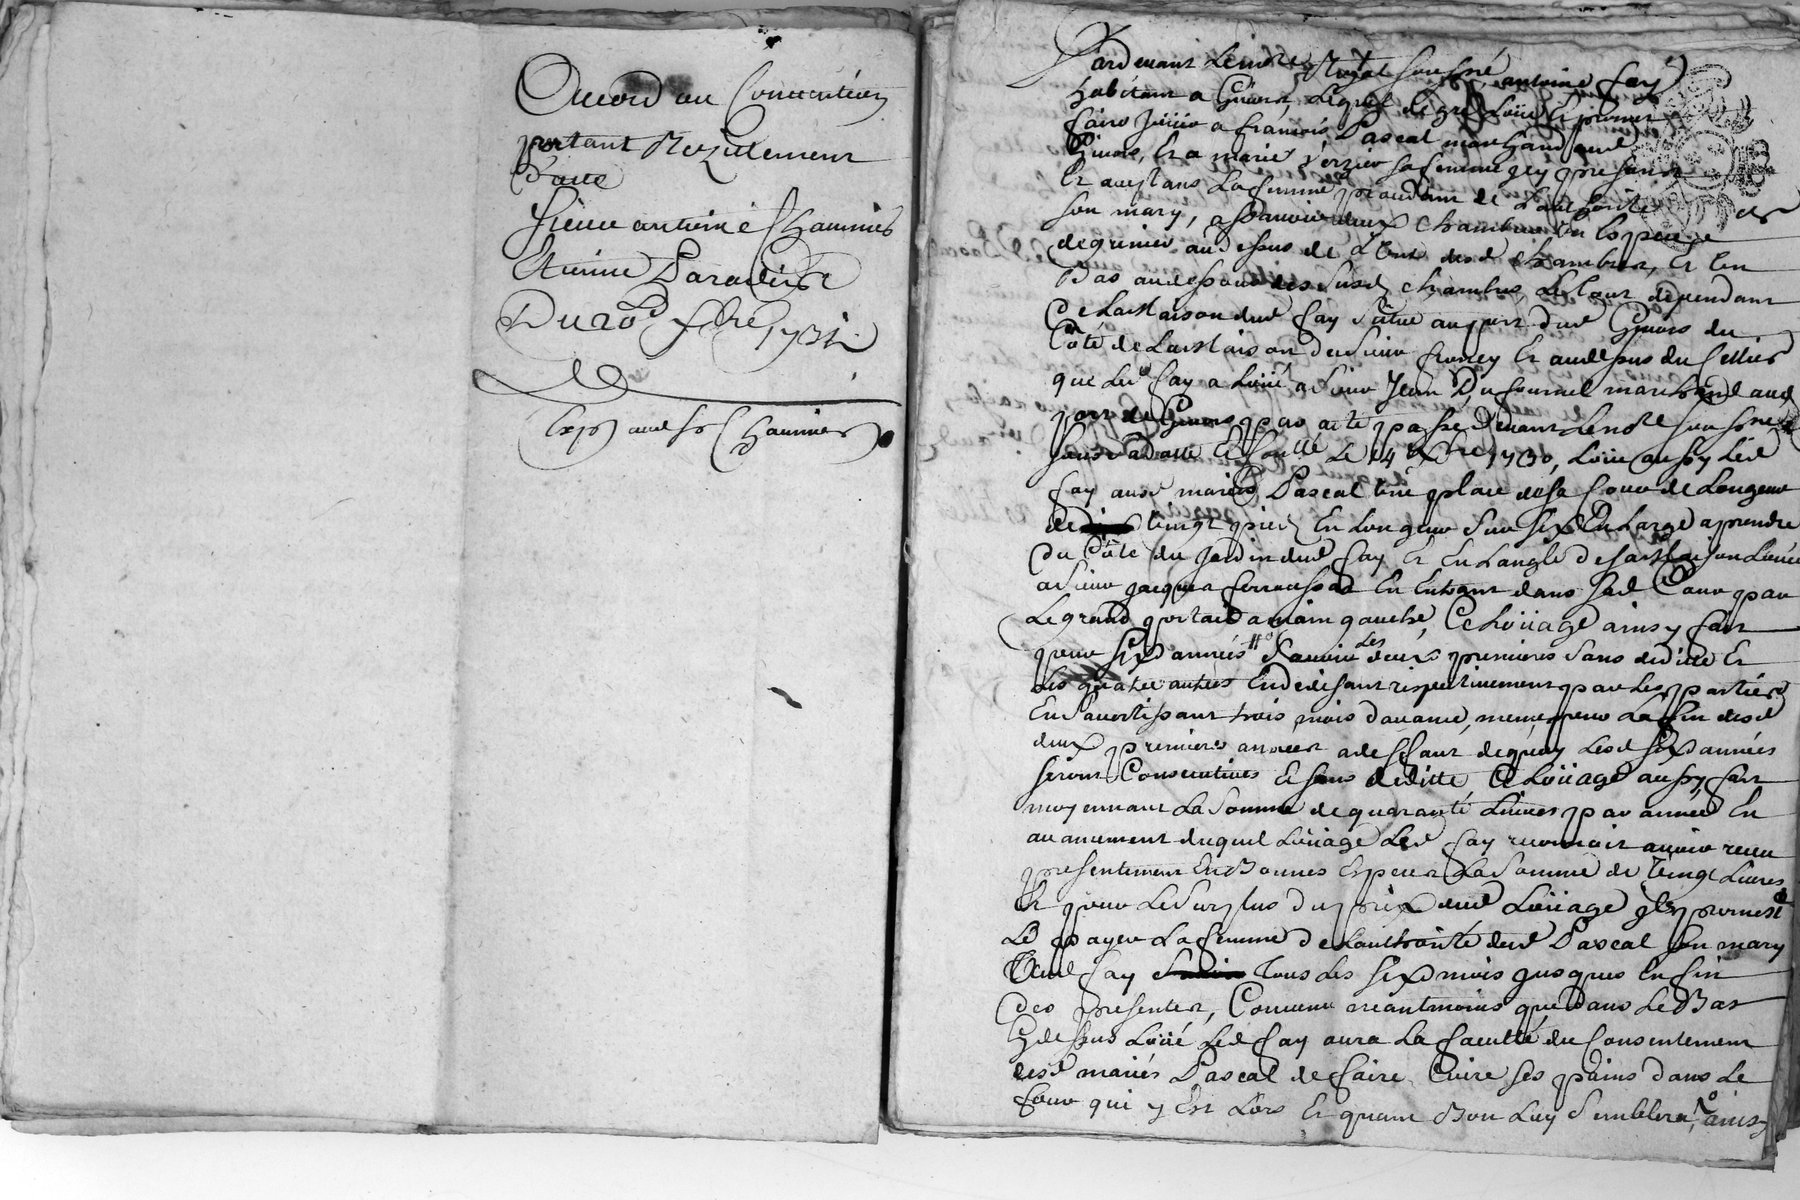 accord ou Convention
portant Reziliement
d'acte
Sieur antoine Chaumier
Etienne Paradis
Du 20e 7bre 1731
Exp aud Sr Chaumier
Pardevant Le no.re Royal soussné antoine fay
habitant a Givors, Lequel de gré a Loüé Et promet
faire joüir a francois Pascal marchand aud
Givors, Et a marie Verzier sa femme icy presents
Et acceptans La femme procedant de L'authorité de
son mary, a scavoir deux chambres
de grenier au dessus de L'une desd chambres, Et Un
Bas au dessous des susd chambres, Le tout dependant
De La Maison dud fay située au port dud Givors du
Côté de La Maison du Sieur Et au dessus du Cellier
que Led fay a Loüé a Sieur Jean Dufournel marchand aud
port de Givors par acte passé devant Le no.re soussné
sous sa datte Controllé Le 14 1730, Loüe aussy Led
fay aud mariés Pascal Une place de sa Cour de Longeur
de Vingt pieds En Longeur Sur six En Large a prendre
du Côté du Jardin dud fay Et En L'angle de sa Maison Loüée
a Sieur jacques En Entrant dans sad Cour par
Le grand portail a main gauche, Ce Loüiage ainsy fait
pour Six années Scavoir Les deux premieres Sans deditte Et
Les quatre autres En dedisant respectivement par Les parties
En S'avertissant trois mois d'avance, meme pour La fin desd
deux premieres années a deffaut de quoy Lesd six années
seront Consecutives Et sans deditte, Ce Loüiage aussy fait
moyennant La Somme de quarante Livres par année En
avancement duquel Loüiage Led fay reconnoit avoir receu
presentement En Bonnes Especes La Somme de Vingt Livres
Et pour Le Surplus du prix dud Loüiage promest
Le payer La femme de Lauthorité dud Pascal Son mary
aud fay tous Les Six mois jusques En fin
des presentes, Convenu neantmoins que dans Le Bas
Cy dessus Loüé Led fay aura La faculté du Consentement
desd mariés Pascal de faire Cuire ses pains dans Le
four qui y Est Lors Et quant Bon Luy Semblera, ainsy